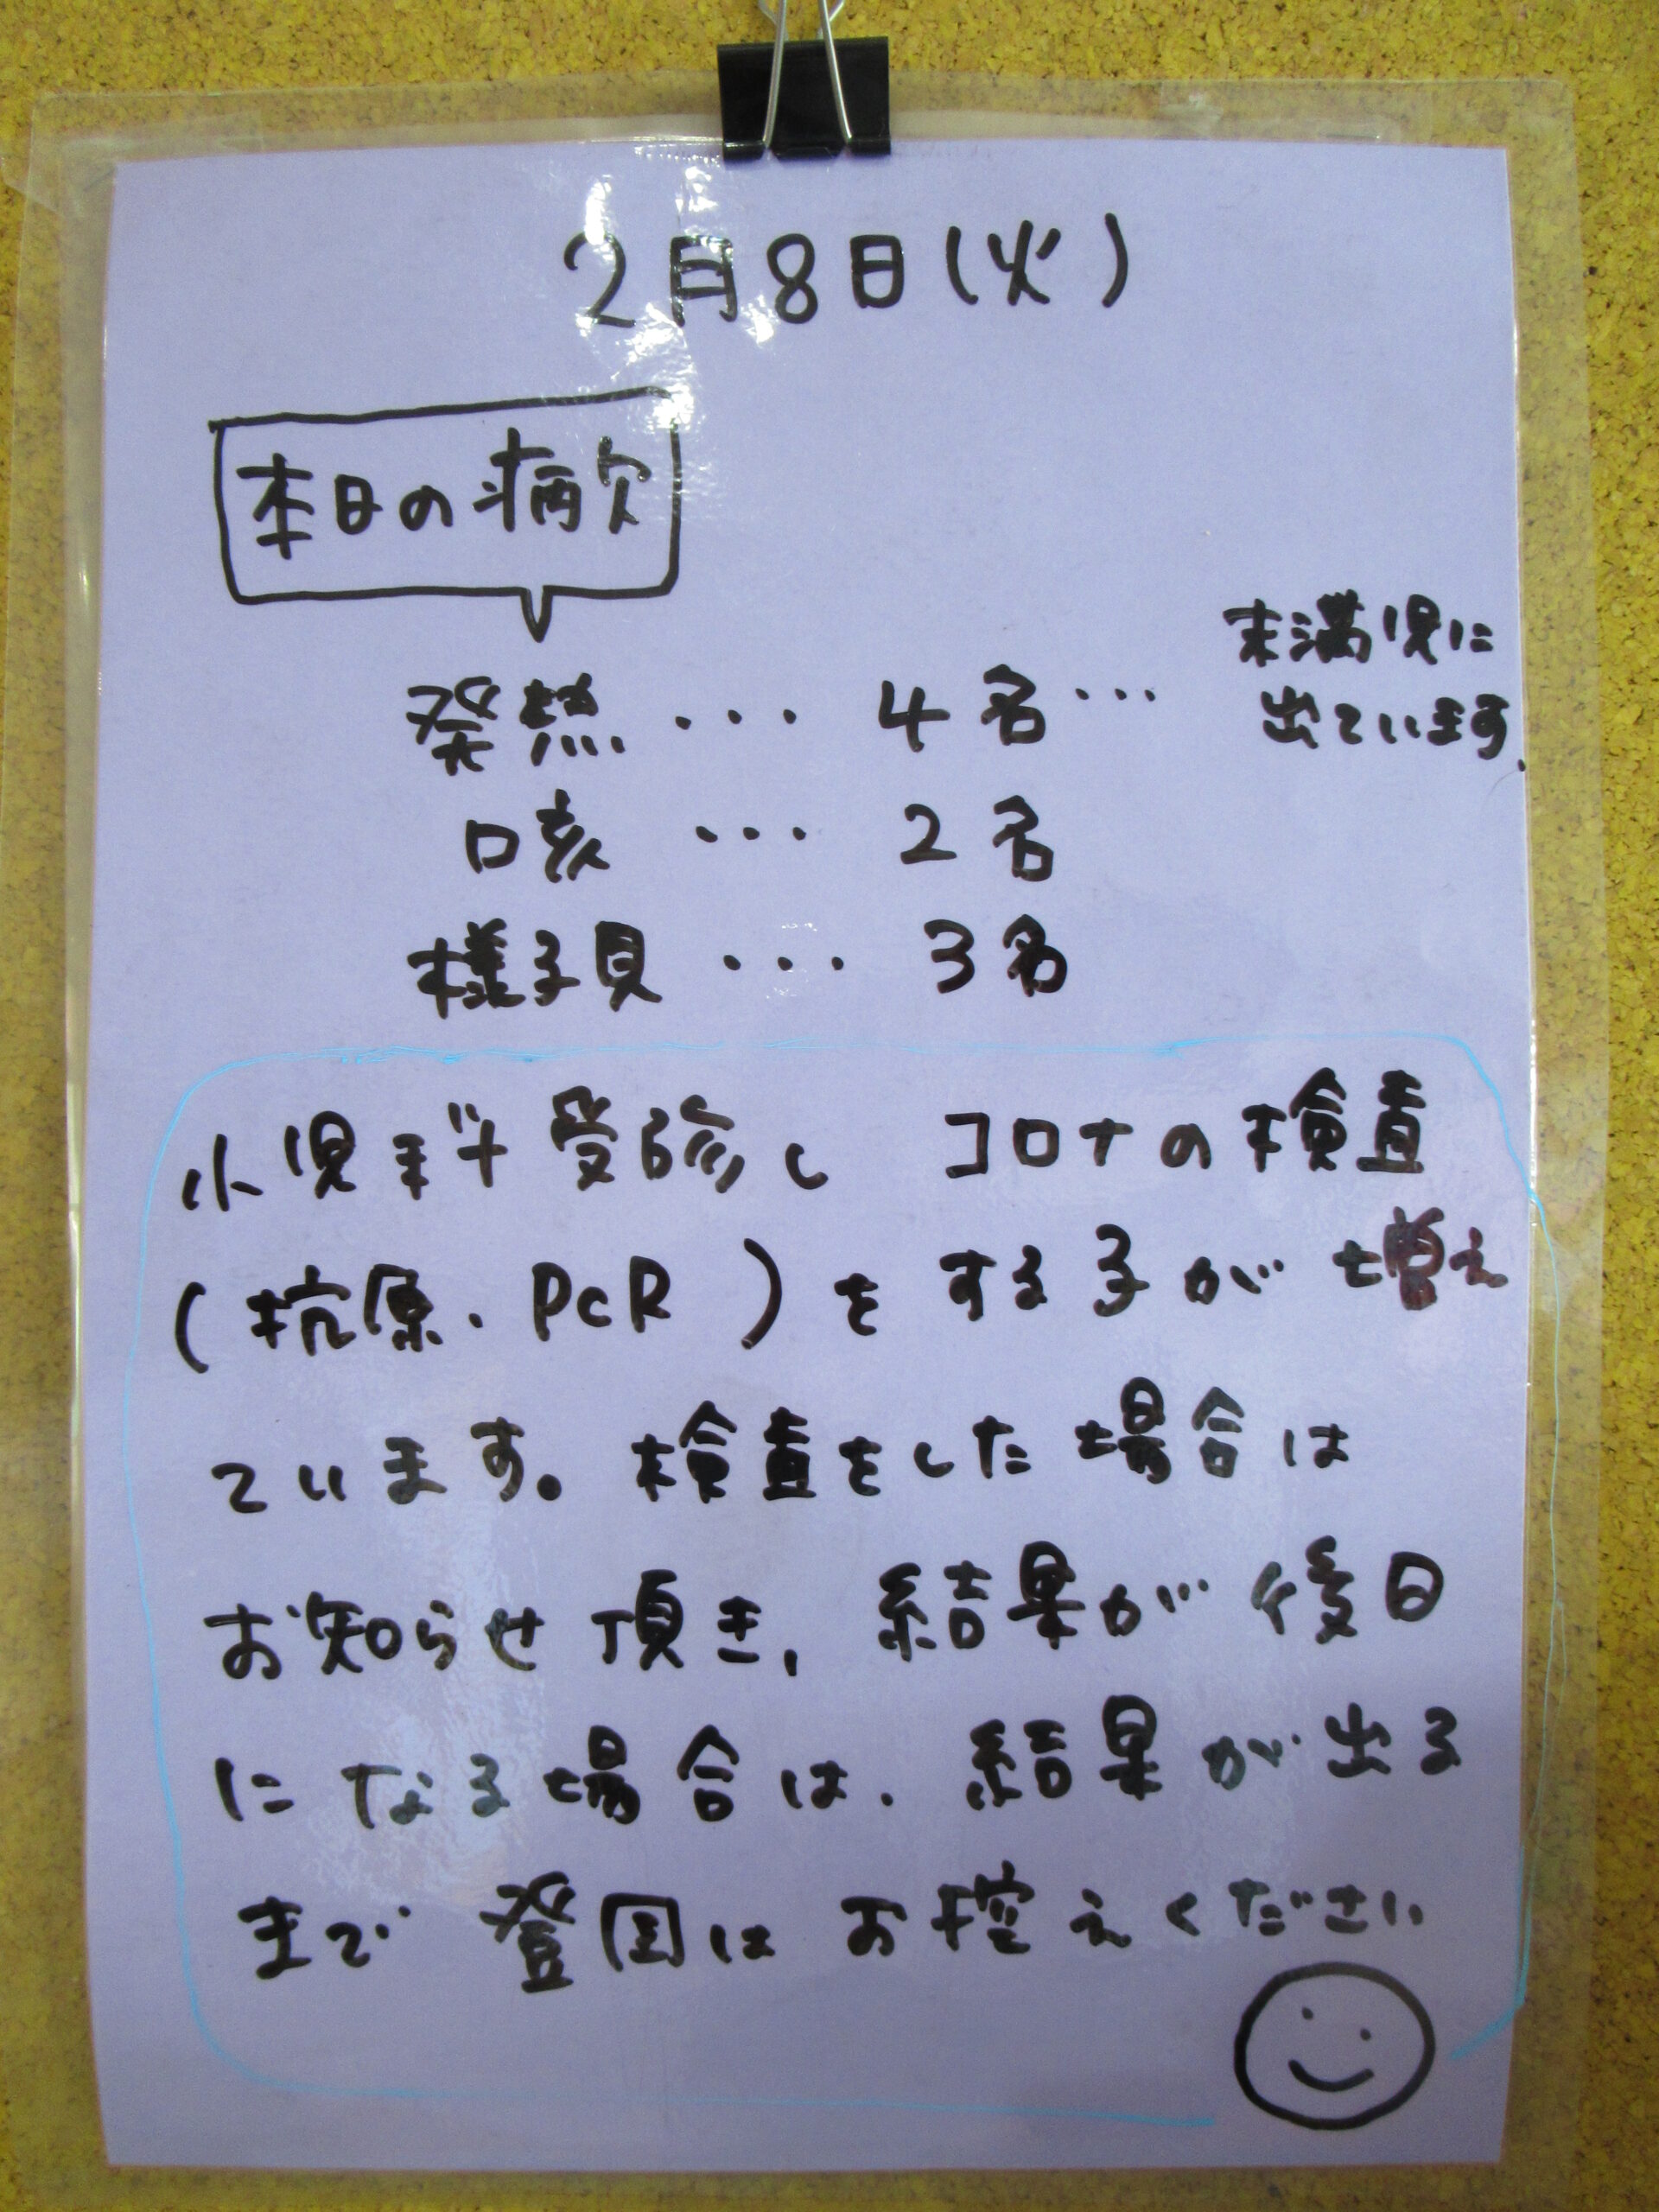 2月8日(火)
本日の病欠
未満児に
発熱・・・4名・・・出ています.
咳・・・2名
様子見・・・3名
小児科受診し コロナの検査
(抗原・PCR)をする子が増え
ています。検査をした場合は
お知らせ頂き、結果が後日
になる場合は、結果が出る
まで登園はお控えください